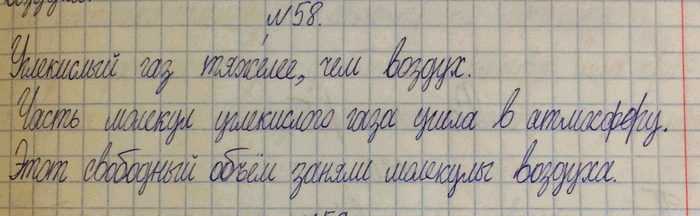 №58.
Углекислый газ тяжелее, чем воздух.
Часть молекул углекислого газа ушла в атмосферу.
Этот свободный объём заняли молекулы воздуха.